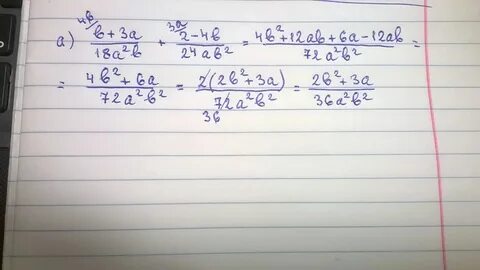 а) ⁴ᵇ/(b+3a)/(18a²b) + ³ᵃ/(2-4b)/(24ab²) = (4b²+12ab+6a-12ab)/(72a²b²) =
= (4b²+6a)/(72a²b²) = 2(2b²+3a)/(72a²b²) = (2b²+3a)/(36a²b²)
36